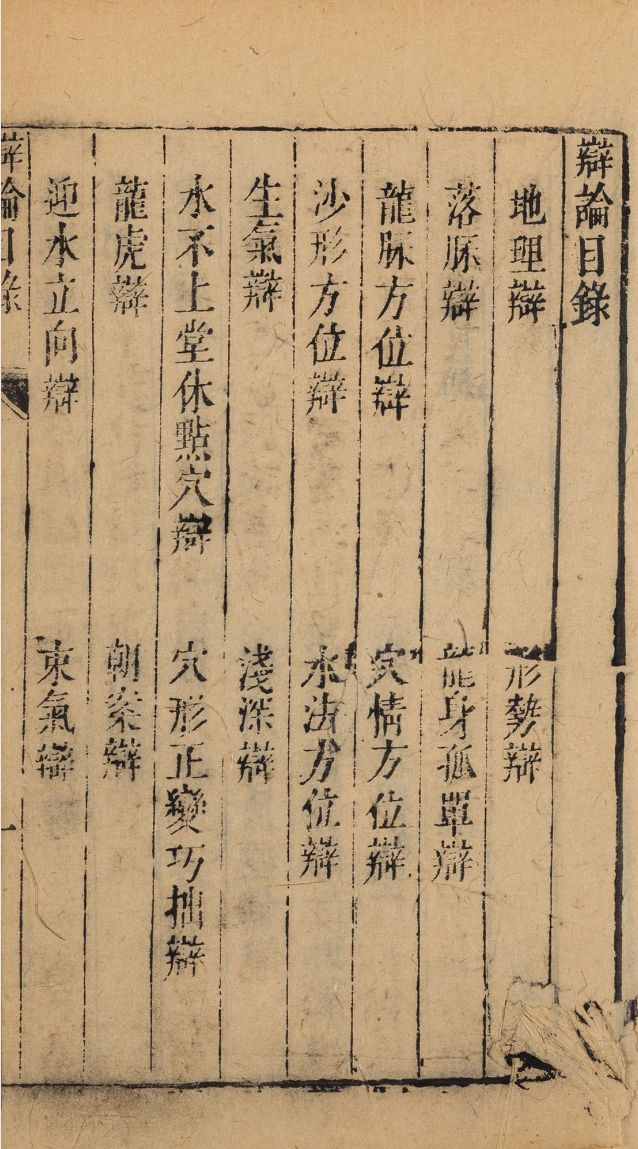 辯論目錄
地理辯
形勢辯
落脈辯
龍身孤單辯
龍脈方位辯
穴情方位辯
沙形方位辯
水法方位辯
生氣辯
淺深辯
水不上堂休點穴辯
穴形正變巧拙辯
龍虎辯
朝案辯
迎水立向辯
束氣辯
辯論目錄
一